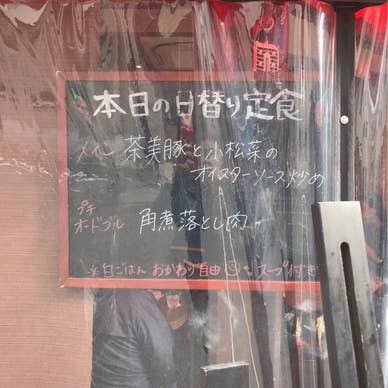 本日の日替り定食
メイン 茶美豚と小松菜の
オイスターソース炒め
プチ
オードブル 角煮落とし肉
※白ごはん おかわり自由 スープ付き